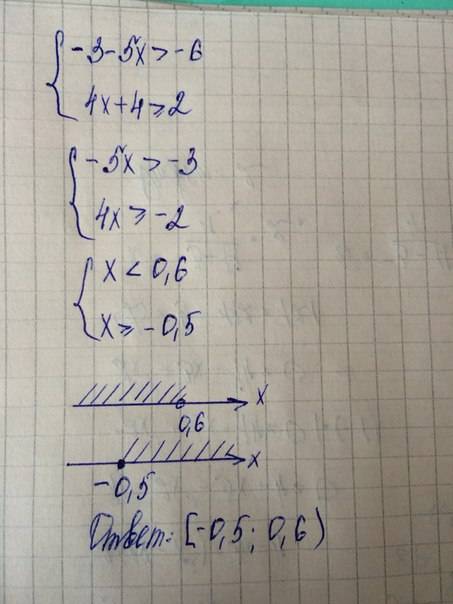 -3-5x>-6
4x+4≥2
-5x>-3
4x≥-2
x<0,6
x≥-0,5
x
0,6
x
-0,5
Ответ: [-0,5; 0,6)